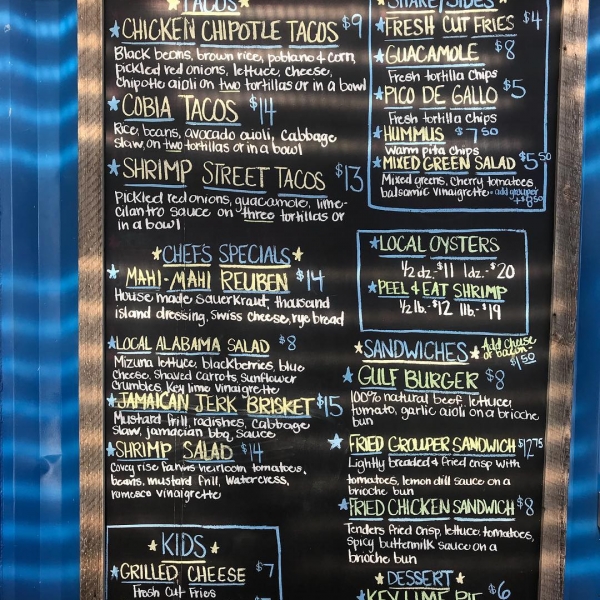 TACOS
CHICKEN CHIPOTLE TACOS $9
Black beans, brown rice, poblano & corn,
pickled red onions, lettuce, cheese,
Chipotle aioli on two tortillas or in a bowl
COBIA TACOS $14
Rice, beans, avocado aioli, cabbage
slaw, on two tortillas or in a bowl
SHRIMP STREET TACOS $13
Pickled red onions, guacamole, lime-
cilantro sauce on three tortillas or
in a bowl
CHEFS SPECIALS
MAHI-MAHI REUBEN $14
House made sauerkraut, thousand
island dressing, swiss cheese, rye bread
LOCAL ALABAMA SALAD $8
Mizuna lettuce, blackberries, blue
cheese, shaved carrots, sunflower
crumbles, key lime vinaigrette
JAMAICAN JERK BRISKET $15
Mustard frill, radishes, cabbage
slaw, jamacian bbq sauce
SHRIMP SALAD $14
Covey rise farms heirloom tomatoes,
beans, mustard frill, watercress,
romesco vinaigrette
KIDS
GRILLED CHEESE $7
Fresh Cut Fries
SHARE/SIDES
FRESH CUT FRIES $4
GUACAMOLE $8
Fresh tortilla chips
PICO DE GALLO $5
Fresh tortilla chips
HUMMUS $7.50
Warm pita chips
MIXED GREEN SALAD $5.50
Mixed greens, cherry tomatoes
balsamic vinaigrette - add grouper
LOCAL OYSTERS
1/2 dz. $11 1dz.-$20
PEEL & EAT SHRIMP
1/2 lb.-$12 1lb.-$19
SANDWICHES Add cheese
or bacon-
$1.50
GULF BURGER $8
100% natural beef, lettuce,
tomato, garlic aioli on a brioche
bun
FRIED GROUPER SANDWICH $12.75
Lightly breaded & fried crisp with
tomatoes, lemon dill sauce on a
brioche bun
FRIED CHICKEN SANDWICH $8
Tenders fried crisp, lettuce, tomatoes,
spicy buttermilk sauce on a
brioche bun
DESSERT
KEY LIME PIE $6